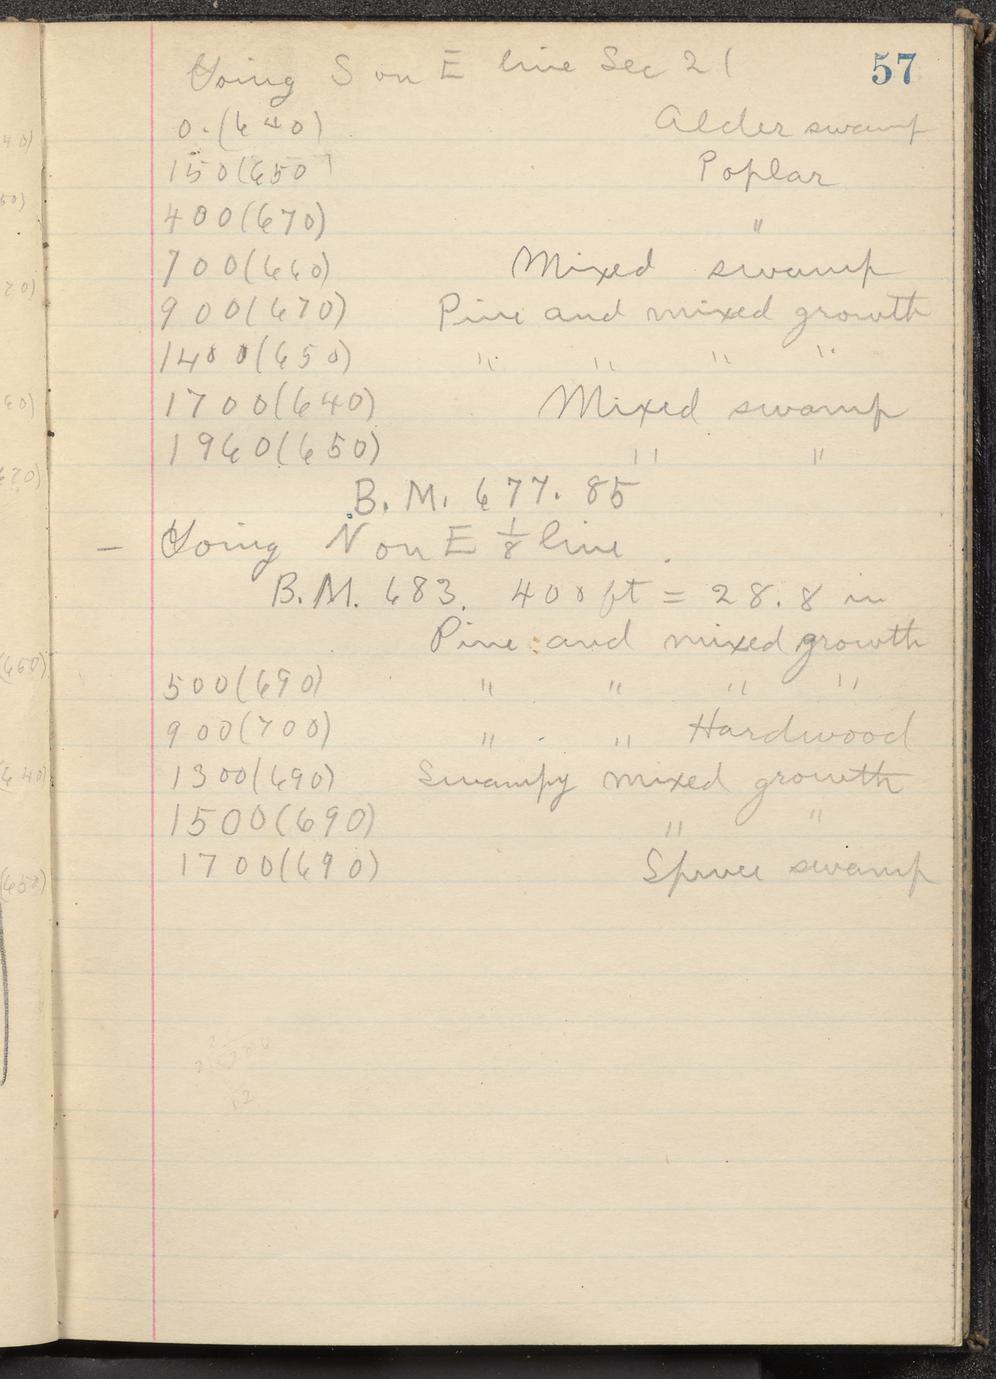 57
Going S on E line Sec 21
0.(640) Alder swamp
150(650) Poplar
400(670) "
700(660) Mixed swamp
900(670) Pine and mixed growth
1400(650) " " " "
1700(640) Mixed swamp
1960(650) " "
B.M. 677.85
— Going N on E 1/8 line.
B.M. 683. 400 ft = 28.8 in
Pine and mixed growth
500(690) " " " "
900(700) " " Hardwood
1300(690) Swampy mixed growth
1500(690) " "
1700(690) Spruce swamp